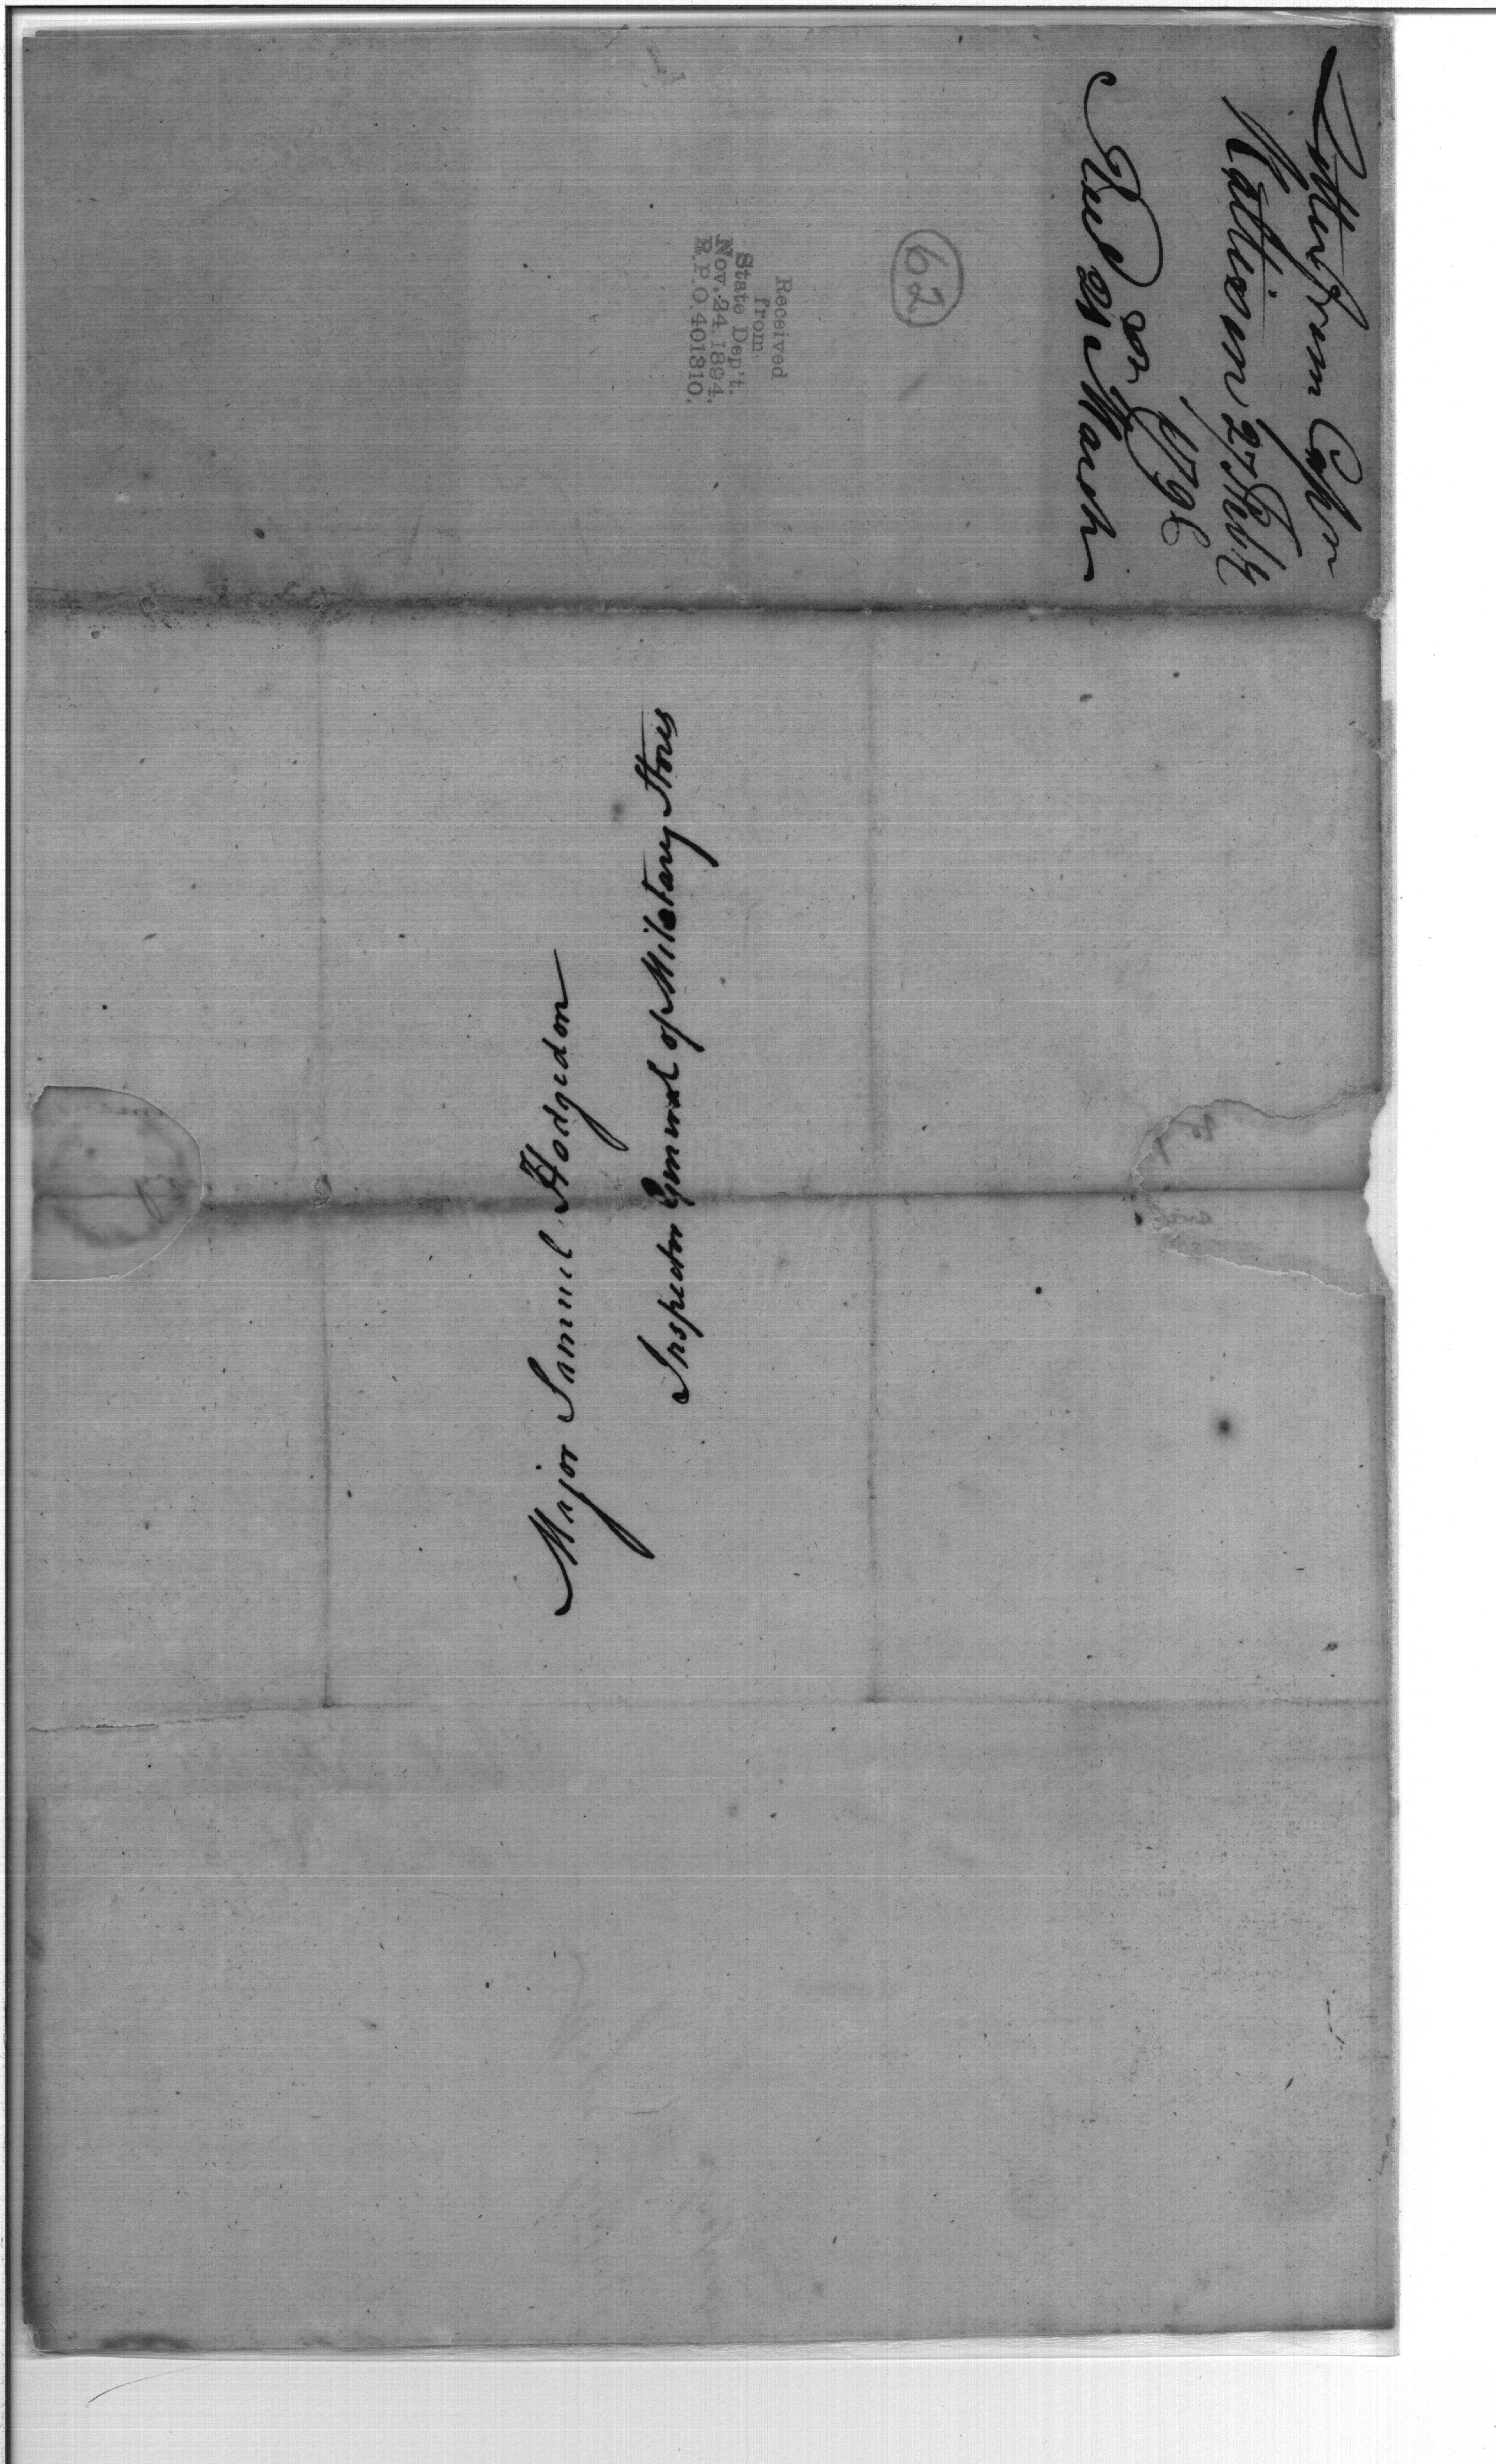 Letter from Capn
Kattison 27 Feby
1798
Recd 21 March
62
Received
from
State Dep't.
Nov. 24. 1894.
R.P.O. 401310.
Major Samuel Hodgedon
Inspector General of Miletary Stores